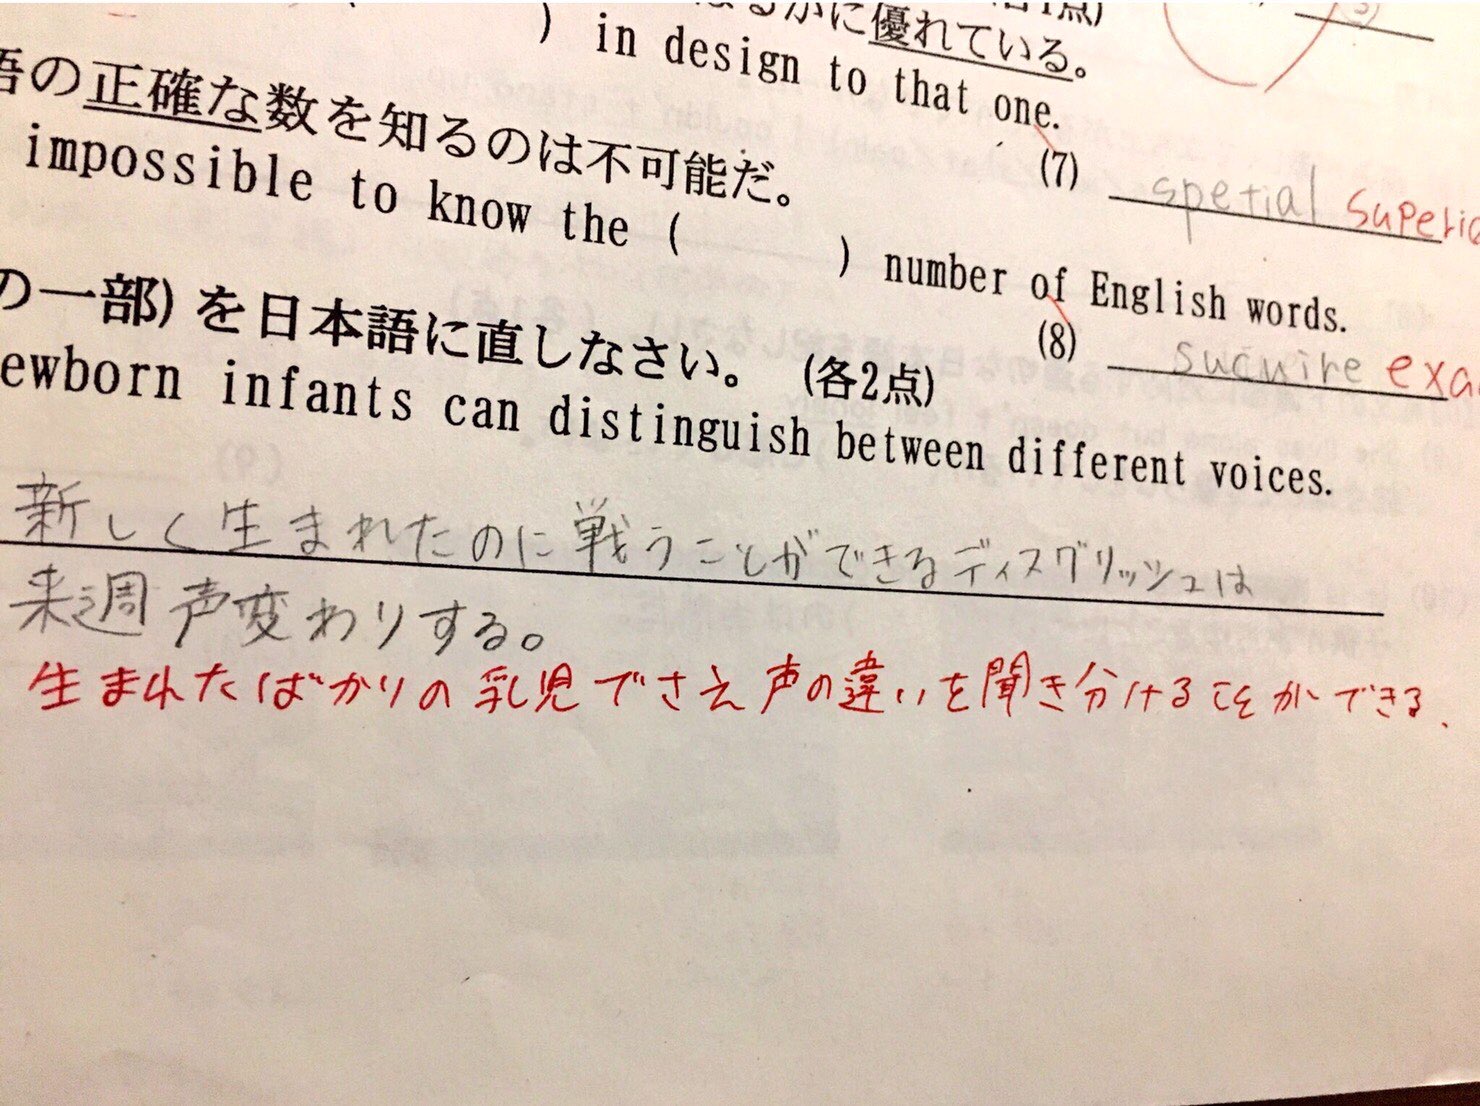 はるかに優れている。
) in design to that one.
(7) spetial superio
語の正確な数を知るのは不可能だ。
impossible to know the ( ) number of English words.
(8) sucuire exa
の一部)を日本語に直しなさい。 (各2点)
ewborn infants can distinguish between different voices.
新しく生まれたのに戦うことができるディスグリッシュは
来週声変わりする。
生まれたばかりの乳児でさえ声の違いを聞き分けることができる.